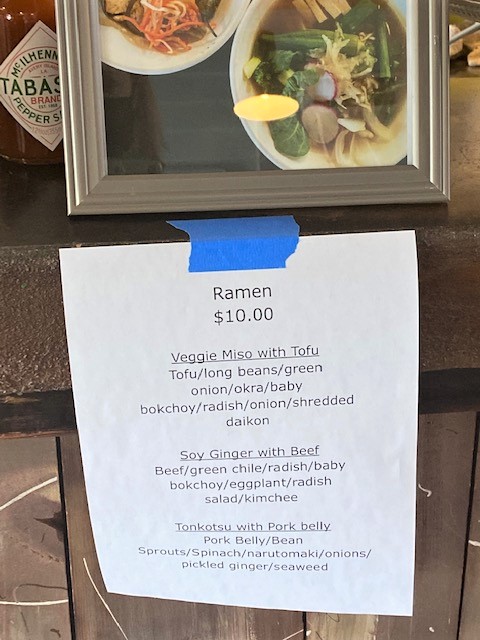 McILHENNY
TABAS
BRAND
PEPPER S
Ramen
$10.00
Veggie Miso with Tofu
Tofu/long beans/green
onion/okra/baby
bokchoy/radish/onion/shredded
daikon
Soy Ginger with Beef
Beef/green chile/radish/baby
bokchoy/eggplant/radish
salad/kimchee
Tonkotsu with Pork belly
Pork Belly/Bean
Sprouts/Spinach/narutomaki/onions/
pickled ginger/seaweed